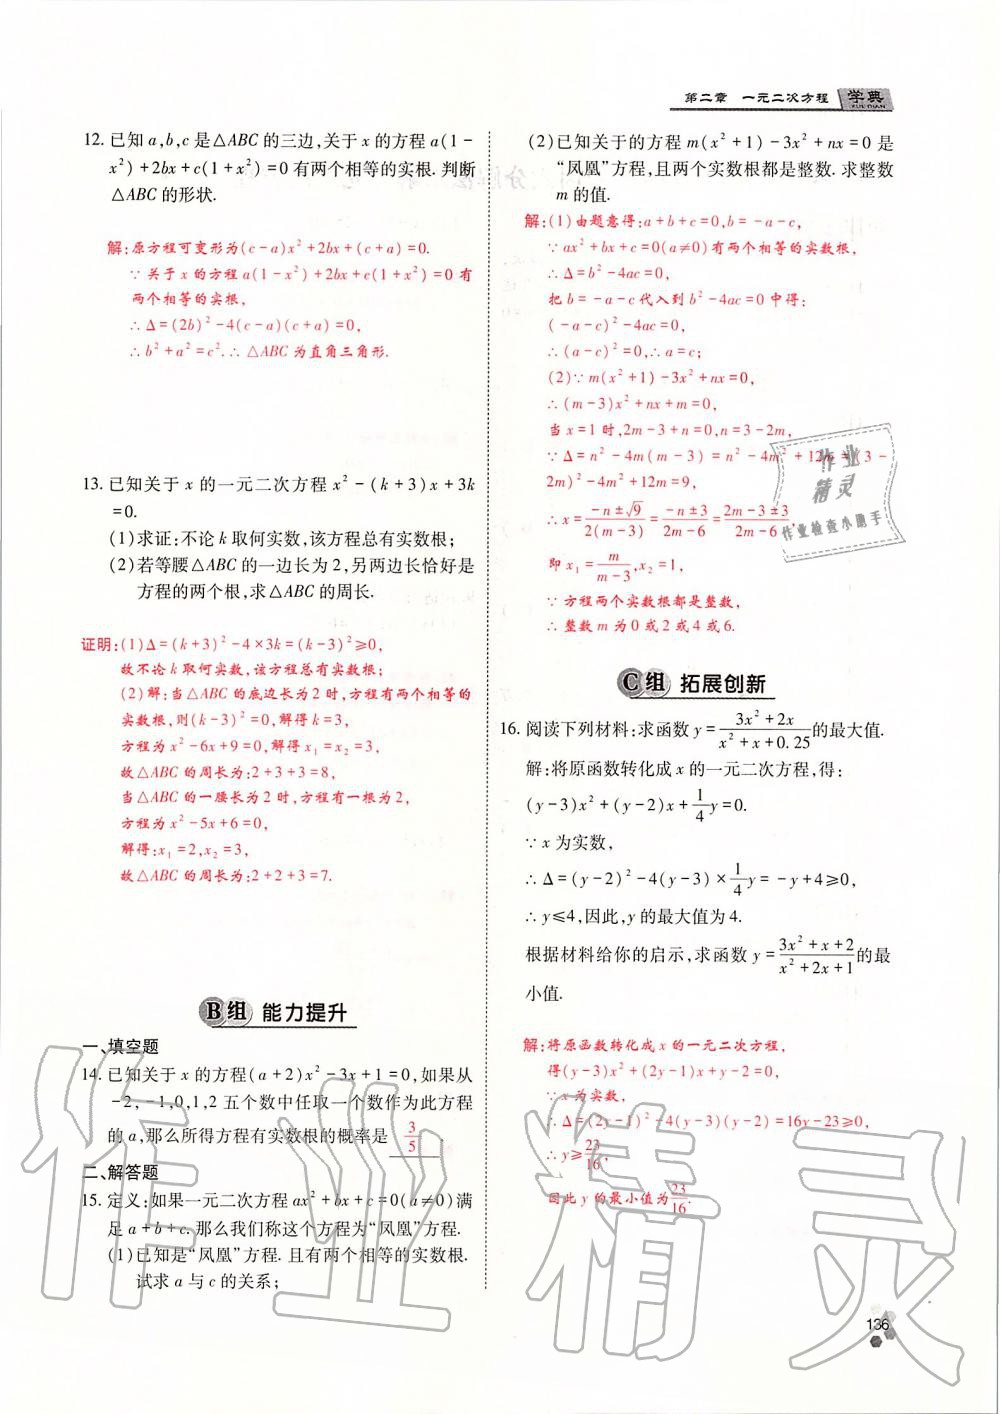 第二章 一元二次方程 学典
XUE DIAN
12. 已知 a,b,c 是△ABC 的三边,关于 x 的方程 a(1-
x²)+2bx+c(1+x²)=0 有两个相等的实根. 判断
△ABC 的形状.
解:原方程可变形为(c-a)x²+2bx+(c+a)=0.
∵关于 x 的方程 a(1-x²)+2bx+c(1+x²)=0 有
两个相等的实根,
∴Δ=(2b)²-4(c-a)(c+a)=0,
∴b²+a²=c².∴△ABC 为直角三角形.
13. 已知关于 x 的一元二次方程 x²-(k+3)x+3k
=0.
(1)求证:不论 k 取何实数,该方程总有实数根;
(2)若等腰△ABC 的一边长为 2,另两边长恰好是
方程的两个根,求△ABC 的周长.
证明:(1)Δ=(k+3)²-4×3k=(k-3)²≥0,
故不论 k 取何实数,该方程总有实数根;
(2)解:当△ABC 的底边长为 2 时,方程有两个相等的
实数根,则(k-3)²=0,解得 k=3,
方程为 x²-6x+9=0,解得 x₁=x₂=3,
故△ABC 的周长为:2+3+3=8,
当△ABC 的一腰长为 2 时,方程有一根为 2,
方程为 x²-5x+6=0,
解得:x₁=2,x₂=3,
故△ABC 的周长为:2+2+3=7.
B组 能力提升
一、填空题
14. 已知关于 x 的方程(a+2)x²-3x+1=0,如果从
-2,-1,0,1,2 五个数中任取一个数作为此方程
的 a,那么所得方程有实数根的概率是 3/5 .
二、解答题
15. 定义:如果一元二次方程 ax²+bx+c=0(a≠0)满
足 a+b+c. 那么我们称这个方程为“凤凰”方程.
(1)已知是“凤凰”方程. 且有两个相等的实数根.
试求 a 与 c 的关系;
(2)已知关于的方程 m(x²+1)-3x²+nx=0 是
“凤凰”方程,且两个实数根都是整数. 求整数
m 的值.
解:(1)由题意得:a+b+c=0,b=-a-c,
∵ax²+bx+c=0(a≠0)有两个相等的实数根,
∴Δ=b²-4ac=0,
把 b=-a-c 代入到 b²-4ac=0 中得:
(-a-c)²-4ac=0,
∴(a-c)²=0,∴a=c;
(2)∵m(x²+1)-3x²+nx=0,
∴(m-3)x²+nx+m=0,
当 x=1 时,2m-3+n=0,n=3-2m,
∵Δ=n²-4m(m-3)=n²-4m²+12m=(3-
2m)²-4m²+12m=9,
∴x=(-n±√9)/(2(m-3))=(-n±3)/(2m-6)=(2m-3±3)/(2m-6),
即 x₁=m/(m-3),x₂=1,
∵方程两个实数根都是整数,
∴整数 m 为 0 或 2 或 4 或 6.
C组 拓展创新
16. 阅读下列材料:求函数 y=(3x²+2x)/(x²+x+0.25)的最大值.
解:将原函数转化成 x 的一元二次方程,得:
(y-3)x²+(y-2)x+1/4y=0.
∵x 为实数,
∴Δ=(y-2)²-4(y-3)×1/4y=-y+4≥0,
∴y≤4,因此,y 的最大值为 4.
根据材料给你的启示,求函数 y=(3x²+x+2)/(x²+2x+1)的最
小值.
解:将原函数转化成 x 的一元二次方程,
得(y-3)x²+(2y-1)x+y-2=0,
∵x 为实数,
∴Δ=(2y-1)²-4(y-3)(y-2)=16y-23≥0,
∴y≥23/16,
因此 y 的最小值为23/16.
作业
精灵
作业检查小助手
作业精灵
136